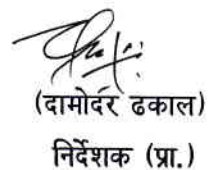 (दामोदर ढकाल)
निर्देशक (प्रा.)